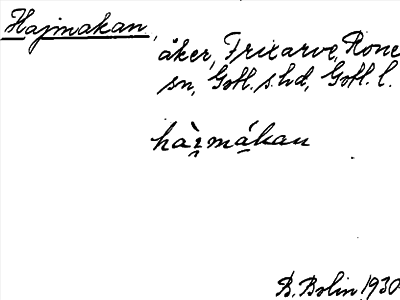 Hajmakan,
åker, Frixarve, Rone
sn, Gotl. s. hd, Gotl. l.
hàı̯mákan
B. Bolin 1930